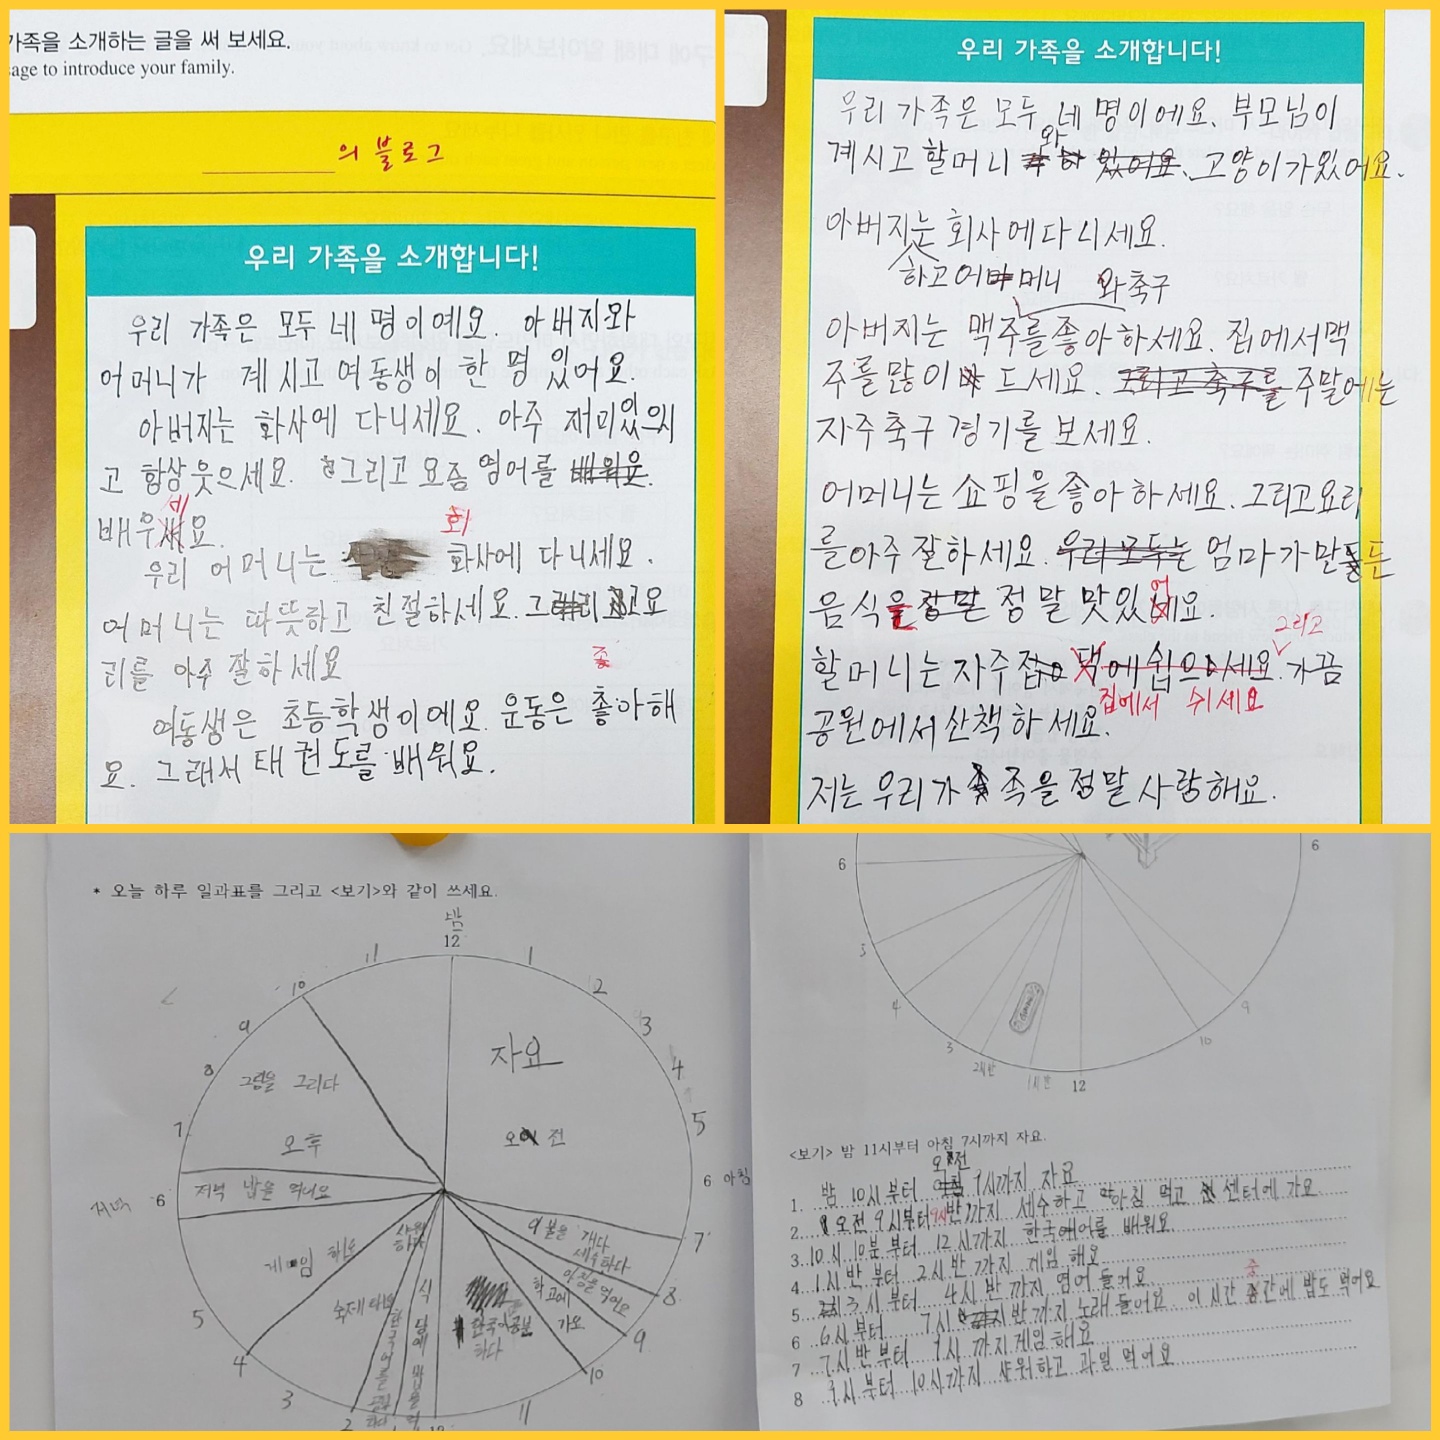 가족을 소개하는 글을 써 보세요.
sage to introduce your family.
의 블로그
우리 가족을 소개합니다!
우리 가족은 모두 네 명이예요. 아버지와
어머니가 계시고 여동생이 한 명 있어요.
아버지는 화사에 다니세요. 아주 재미있으시
고 항상 웃으세요. 그리고 요즘 영어를
배우세요.
회
우리 어머니는 화사에 다니세요.
어머니는 따뜻하고 친절하세요. 그리고 요
리를 아주 잘하세요
좋
여동생은 초등학생이에요. 운동은 좋아해
요. 그래서 태권도를 배워요.
우리 가족을 소개합니다!
우리 가족은 모두 네 명이에요. 부모님이
계시고 할머니와 고양이가 있어요.
아버지는 회사에 다니세요.
하고 어머니 와 축구
아버지는 맥주를 좋아하세요. 집에서 맥
주를 많이 드세요. 주말에는
자주 축구 경기를 보세요.
어머니는 쇼핑을 좋아하세요. 그리고 요리
를 아주 잘하세요. 엄마가 만든
음식 정말 맛있어요.
그리고
할머니는 자주 가끔
집에서 쉬세요
공원에서 산책하세요.
저는 우리 가족을 정말 사랑해요.
* 오늘 하루 일과표를 그리고 <보기>와 같이 쓰세요.
밤
12
11 1
10 2
9 3
8 4
7 5
6 6 아침
저녁
5 7
4 8
3 9
2 10
11
자요
오전
그림을 그리다
오후
저녁 밥을 먹어요
게임 해요
이불을 개다
세수하다
아침을 먹어요
학교에
가요
한국어 공부
하다
6 6
3
4 9
3 10
2시반 1시반 12
<보기> 밤 11시부터 아침 7시까지 자요.
오전
1 밤 10시부터 9시까지 자요
2 오전 9시부터 9시반까지 세수하고 아침 먹고 센터에 가요
3 10시 10분부터 12시까지 한국어를 배워요
4 1시반부터 2시반까지 게임 해요
5 3시부터 4시반까지 영어 들어요
중
6 6시부터 7시반까지 노래 들어요 이 시간 중간에 밥도 먹어요
7 7시반부터 9시까지 게임 해요
8 9시부터 10시까지 샤워하고 과일 먹어요